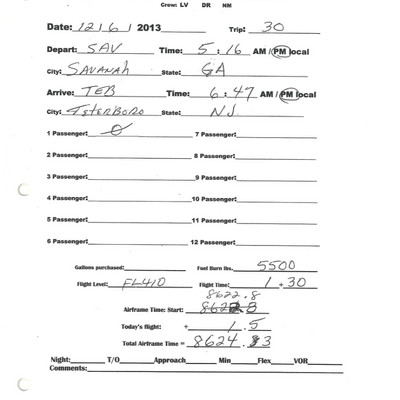 Crew: LV DR NM
Date: 12 / 6 / 2013 Trip: 30
Depart: SAV Time: 5 : 16 AM / PM local
City: SAVANAH State: GA
Arrive: TEB Time: 6 : 47 AM / PM local
City: TETERBORO State: NJ
1 Passenger: 0 7 Passenger:
2 Passenger: 8 Passenger:
3 Passenger: 9 Passenger:
4 Passenger: 10 Passenger:
5 Passenger: 11 Passenger:
6 Passenger: 12 Passenger:
Gallons purchased: Fuel Burn lbs. 5500
Flight Level: FL410 Flight Time: 1 + 30
8622.8
Airframe Time: Start: 862 .8
Today's flight: + 1 . 5
Total Airframe Time = 8624 . 3
Night: T/O Approach Min Flex VOR
Comments: